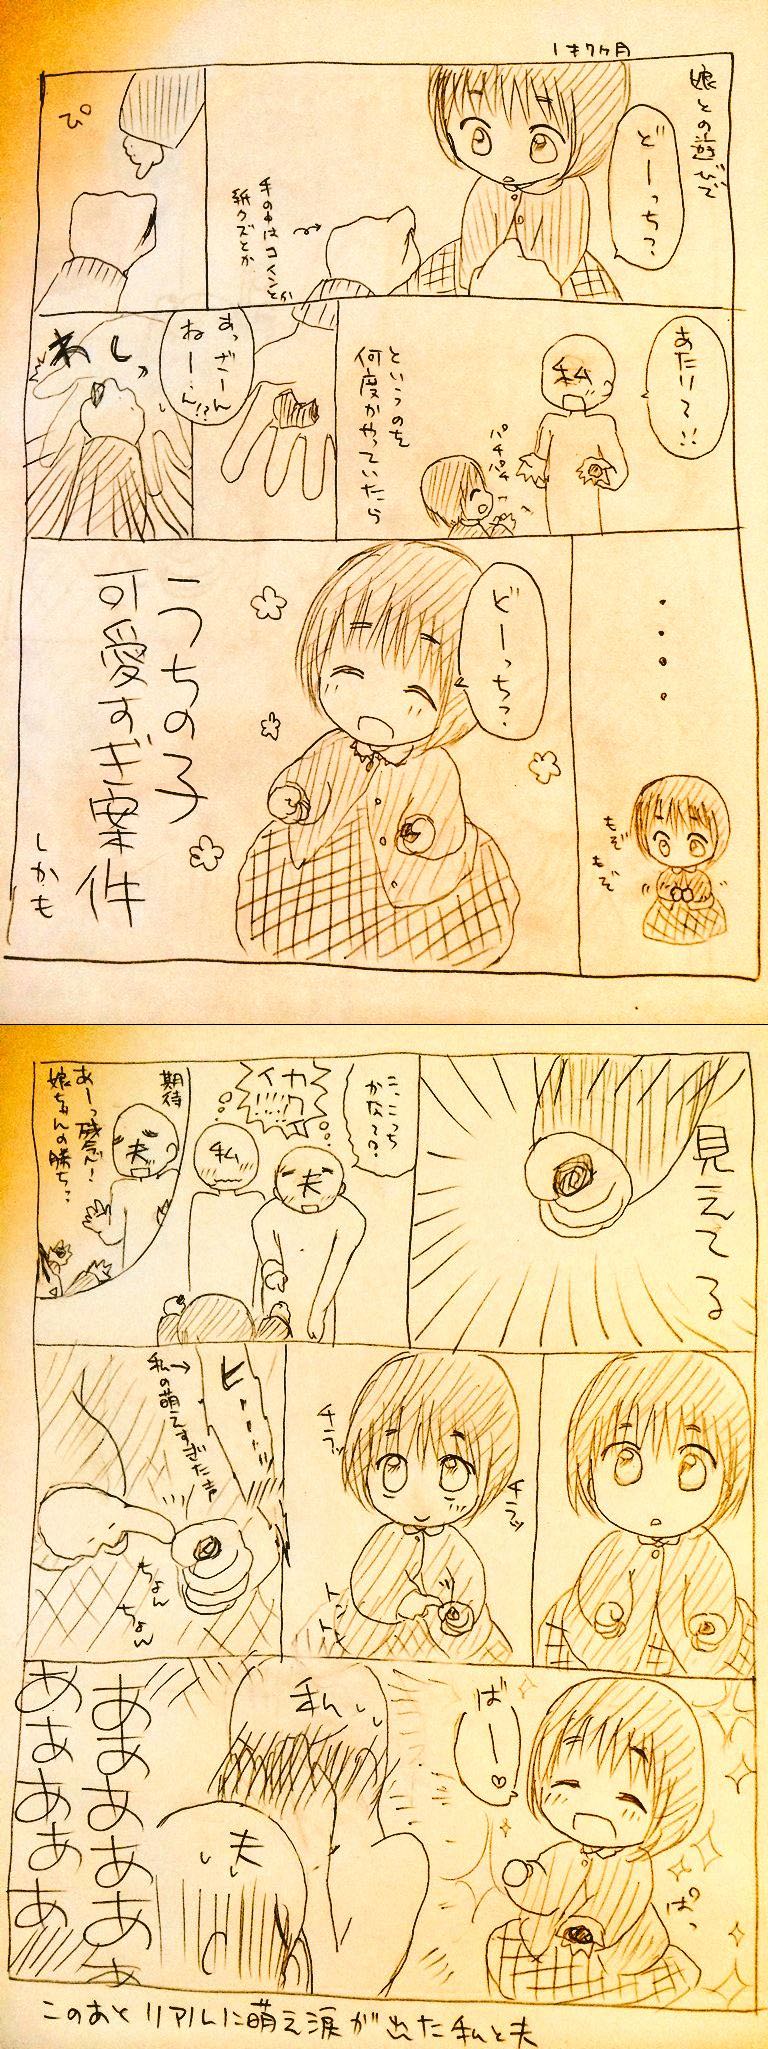 1才7ヶ月
娘との遊びで
どーっち?
手の中はコインとか
紙クズとか
ぴ
あたりて!!
私
パチパチ
というのを
何度かやっていたら
あっざーん
ねーん!?
わしっ
・・・・
もぞ
もぞ
どーっち?
うちの子
可愛すぎ案件
しかも
見えてる
こ、こっち
かなー??
カクイイ!!!!
夫
私
期待
夫
あーっ残念!
娘ちゃんの勝ち??
チラッ
チラッ
トントン
ヒー
私の萌えすぎた声
ちょん
ちょん
ばー♡
ぱっ
私
夫
ああああああぁ
ああああああ
このあとリアルに萌え涙が出た私と夫